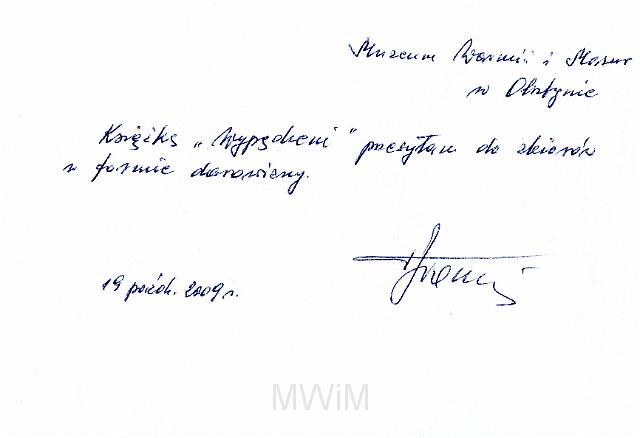 Muzeum Warmii i Mazur
w Olsztynie
Książkę „Wypędzeni" przesyłam do zbiorów
w formie darowizny.
19 paźdz. 2009 r.
MWiM